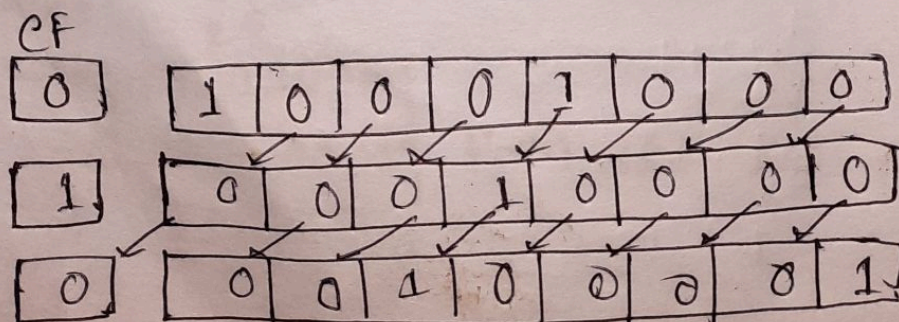 CF
0 1 0 0 0 1 0 0 0
1 0 0 0 1 0 0 0 0
0 0 0 1 0 0 0 0 1